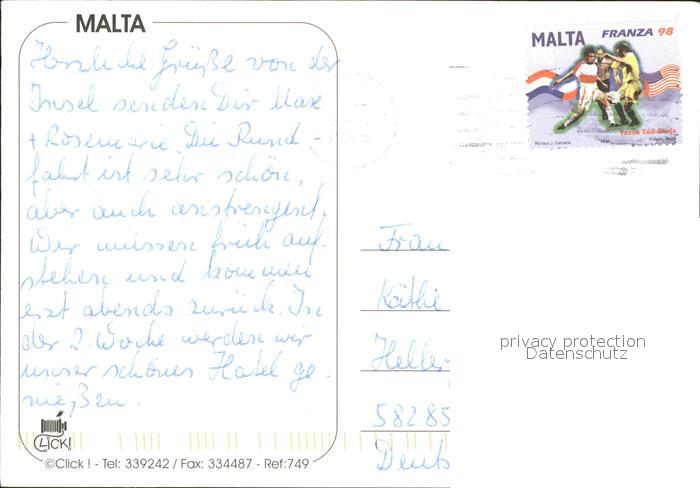 MALTA
Herzliche Grüße von der
Insel senden Dir Max
+ Rosemarie. Die Rund-
fahrt ist sehr schön,
aber auch anstrengent.
Wir müssen früh auf-
stehen und kommen
erst abends zurück. In
der 2. Woche werden wir
unser schönes Hotel ge-
nießen.
CLICK!
©Click ! - Tel: 339242 / Fax: 334487 - Ref:749
MALTA FRANZA 98
Tazza Tad-Dinja
Richard J. Caruana
Frau
Käthe
Helle
58285
Deuts
privacy protection
Datenschutz